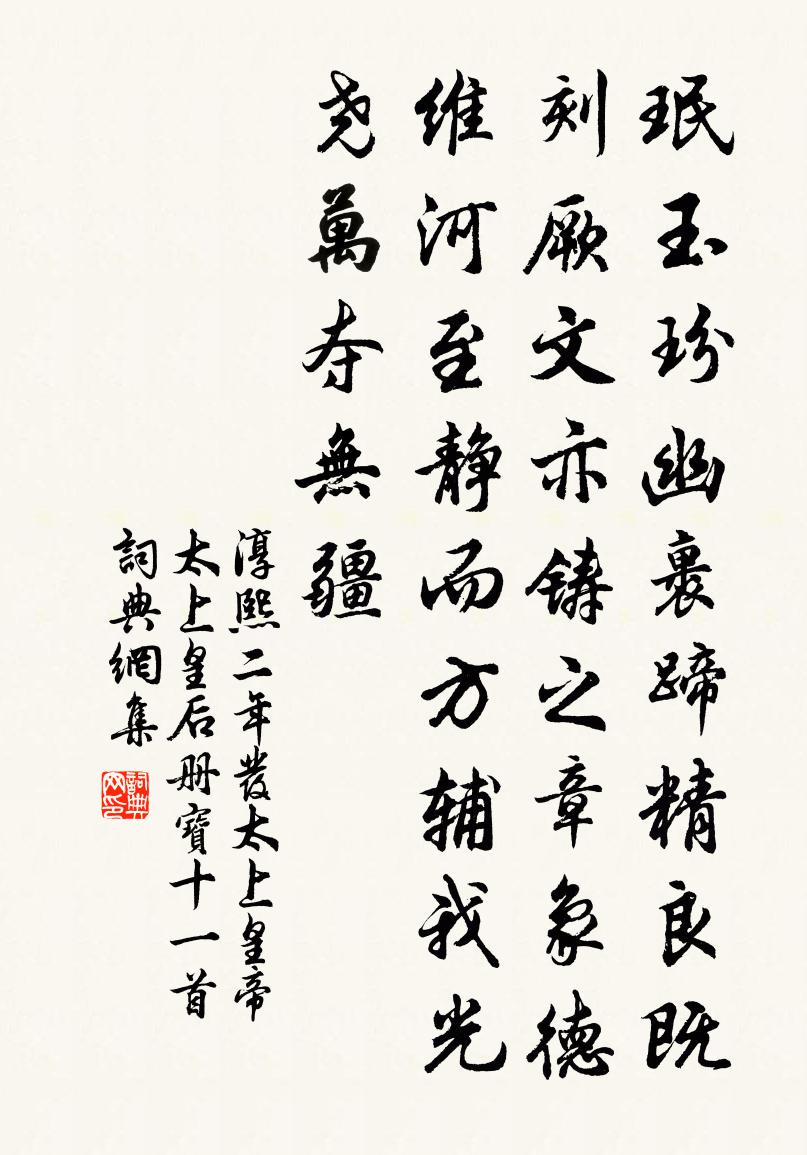 珉玉玢幽裹蹄精良既
刻厥文亦鑄之章象德
維河至靜而方輔我光
尧萬寿無疆
淳熙二年發太上皇帝
太上皇后册寶十一首
詞典網集
詞典网印